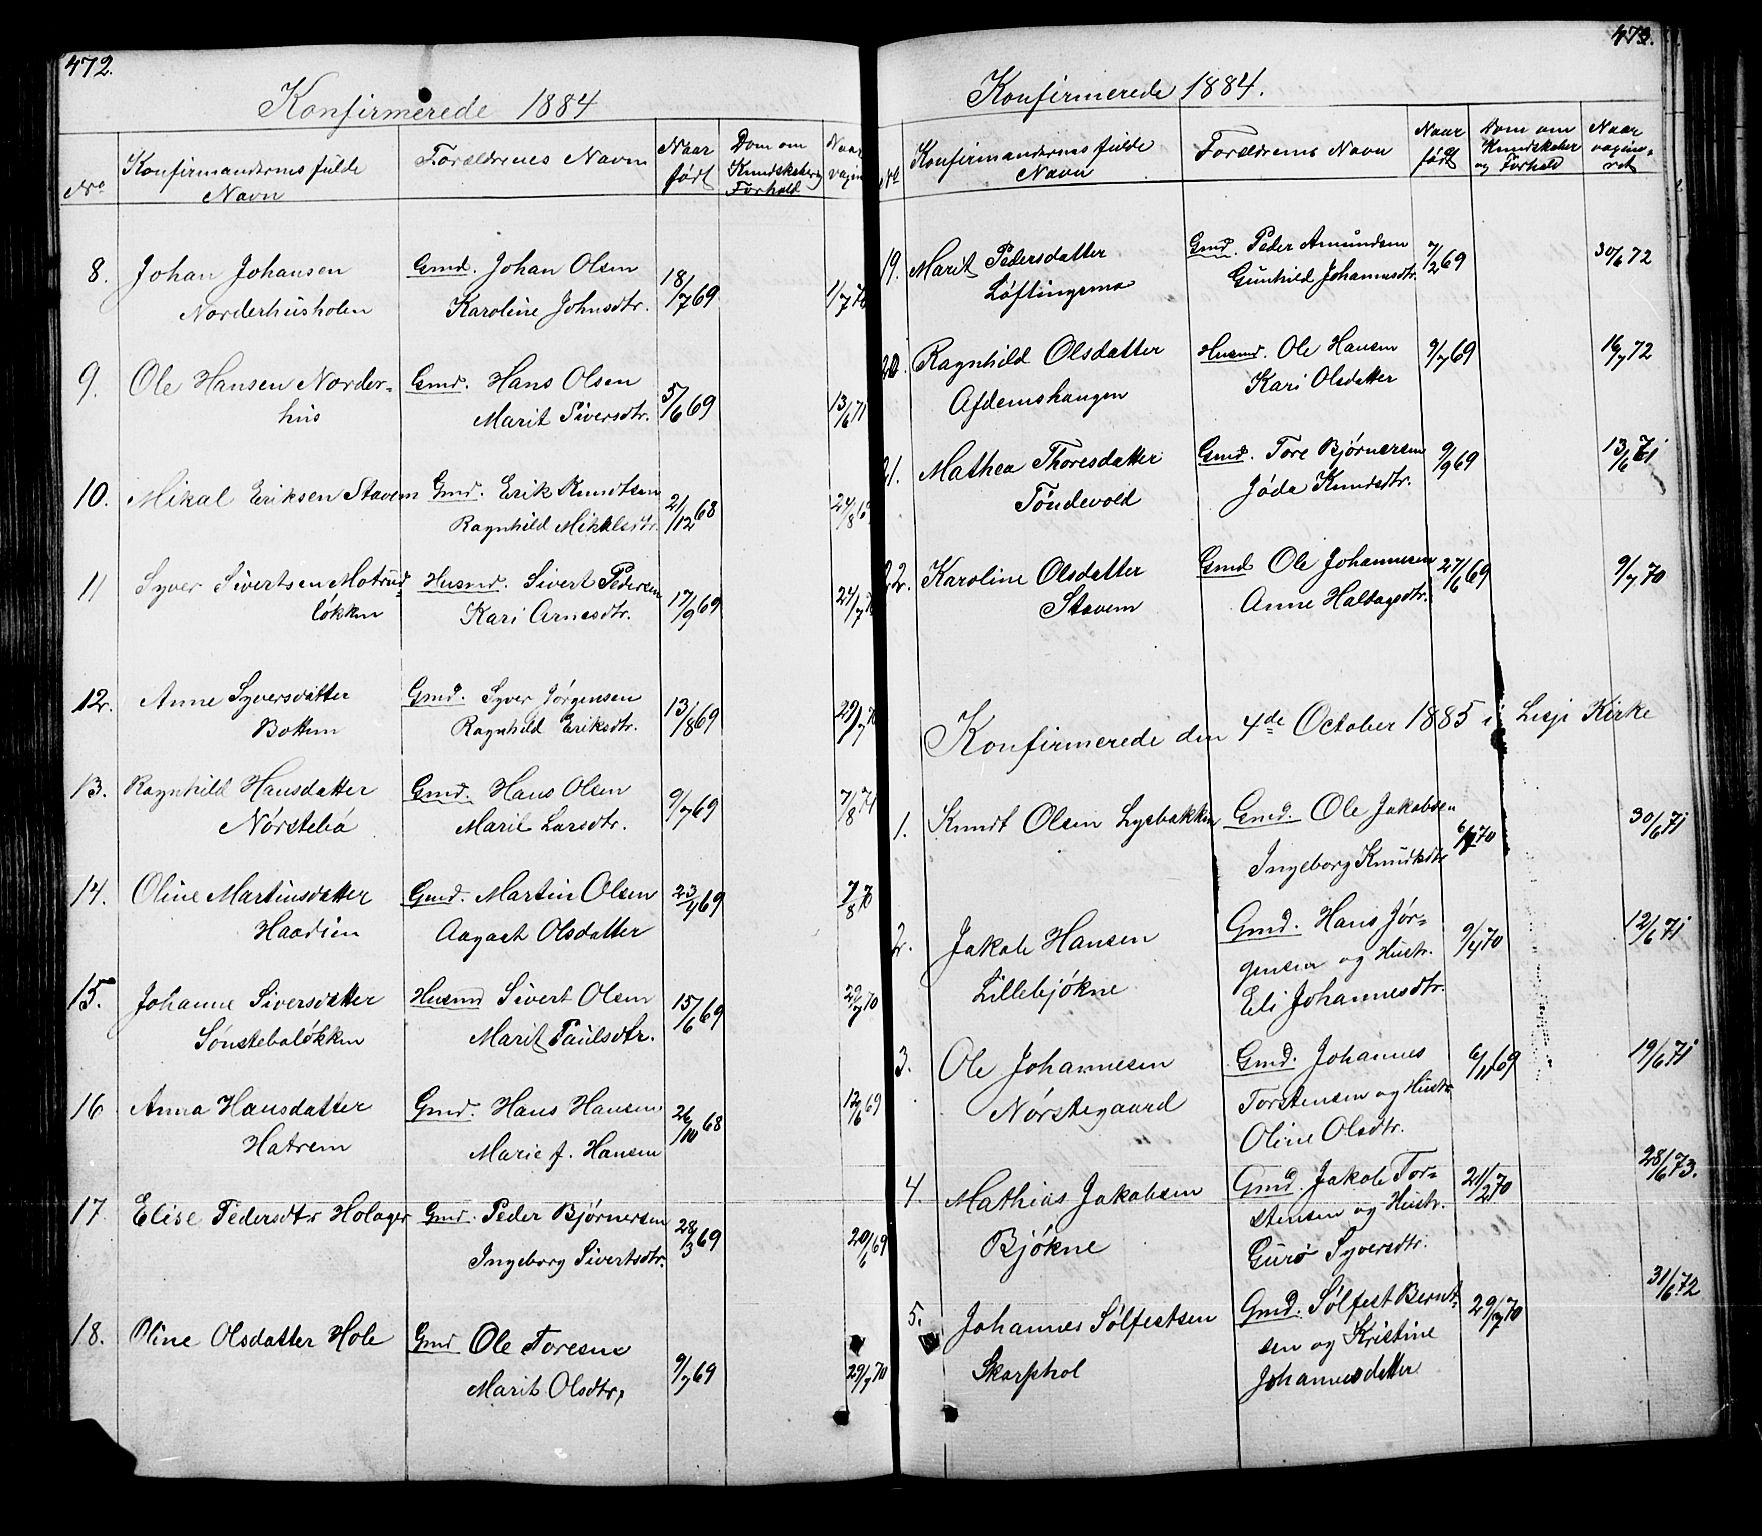 472.
Konfirmerede 1884
No
Konfirmandernes fulde
Navn
Forældrenes Navn
Naar
født
Dom om
Kundskaber og
Forhold
Naar
vagin
8. Johan Johansen Gmd. Johan Olsen 18/7 69
Norderhusholen Karoline Johnsdtr. 1/7 70
9. Ole Hansen Norder- Gmd. Hans Olsen 5/6 69 13/6 71
hus Marit Siversdtr.
10. Mikal Eriksen Stavem Gmd. Erik Knudtsen 21/12 68 24/8
Ragnhild Mikkelsdtr.
11 Syver Sivertsen Motrud- Husmd. Sivert Pedersen 17/9 69 24/7
løkken Kari Arnesdtr.
12. Anne Syversdatter Gmd. Syver Jørgensen 13/8 69 29/7 70
Bottem Ragnhild Eriksdtr.
13. Ragnhild Hansdatter Gmd. Hans Olsen 9/7 69 7/8 71
Nørstebø Marit Larsdtr.
14. Oline Martinsdatter Gmd. Martin Olsen 23/4 69 7/8 70
Haadien Aagaat Olsdatter
15. Johanne Siversdatter Husmd Sivert Olsen 15/6 69 29/7 70
Sønstebøløkken Marit Paulsdtr.
16 Anna Hansdatter Gmd. Hans Hansen 26/10 68 12/6 69
Hatrem Marie f. Hansen
17. Elise Pedersdtr Holager Gmd. Peder Bjørnersen 28/3 69 20/6 69
Ingeborg Sivertsdtr.
18. Oline Olsdatter Hole Gmd Ole Toresen 9/7 69 29/7 70
Marit Olsdtr,
473.
Konfirmerede 1884.
No
Konfirmandernes fulde
Navn
Forældrenes Navn
Naar
født
Dom om
Kundskaber
og Forhold
Naar
vagine-
ret
19. Marit Pedersdatter Gmd. Peder Amundsen 7/2 69 30/6 72
Løftingsmo Gunhild Johannesdtr.
20. Ragnhild Olsdatter Husmd. Ole Hansen 9/7 69 16/7 72
Afdemshaugen Kari Olsdatter
21. Mathea Thoresdatter Gmd. Tore Bjørnersen 9/9 69 13/6 71
Tøndevold Jøda Knudsdtr.
22. Karoline Olsdatter Gmd Ole Johannesen 27/6 69 9/7 70
Stavem Anne Halvagsdtr.
Konfirmerede den 4de October 1885 i Lesje Kirke
1. Knudt Olsen Lysbakken Gmd. Ole Jakobsen 30/6 71
Ingeborg Knudsdtr
2. Jakob Hansen Gmd. Hans Jør- 9/4 70 12/6 71
Lillebjøkne gensen og Hustr.
Eli Johannesdtr.
3. Ole Johannesen Gmd. Johannes 6/11 69 19/6 71
Nørstegaard Torstensen og Hustr
Oline Olsdtr.
4. Mathias Jakobsen Gmd. Jakob Tor- 21/2 70 28/6 73.
Bjøkne stensen og Hustr.
Guro Syversdtr.
5. Johannes Sølfestsen Gmd. Sølfest Bernt- 29/7 70 31/6 72
Skarphol sen og Kristine
Johannesdatter